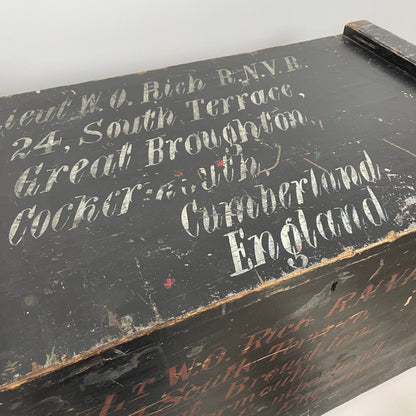 Lieut W.O. Rich R.N.V.R.
24, South Terrace,
Great Broughton,
Cockermouth,
Cumberland,
England
LT W.O. Rich R.N.V.R
24 South Terrace
Great Broughton